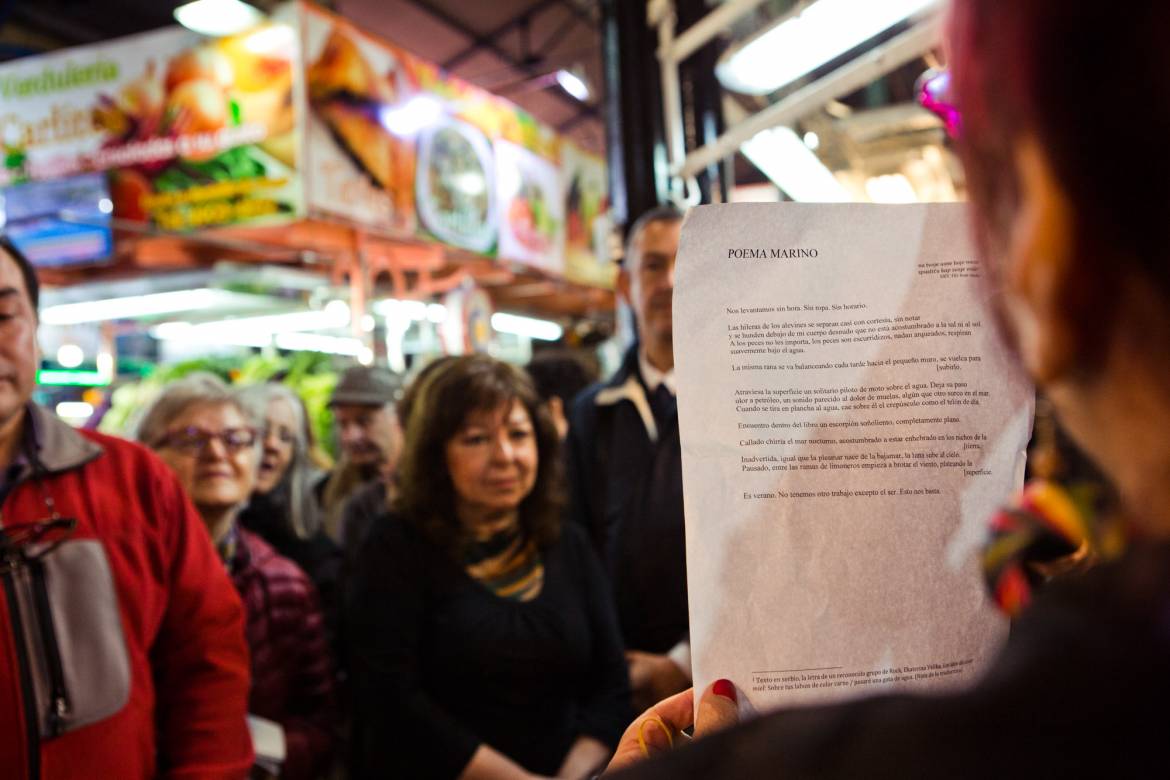 Verdulería
POEMA MARINO
Nos levantamos sin hora. Sin ropa. Sin horario.
Las hileras de los alevines se separan casi con cortesía, sin notar
y se hunden debajo de mi cuerpo desnudo que no está acostumbrado a la sal ni al sol.
A los peces no les importa, los peces son escurridizos, nadan arqueados, respiran
suavemente bajo el agua.
La misma rana se va balanceando cada tarde hacia el pequeño muro, se vuelca para
[subirlo.
Atraviesa la superficie un solitario piloto de moto sobre el agua. Deja su paso
olor a petróleo, un sonido parecido al dolor de muelas, algún que otro surco en el mar.
Cuando se tira en plancha al agua, cae sobre él el crepúsculo como el telón de día.
Encuentro dentro del libro un escorpión soñoliento, completamente plano.
Callado chirría el mar nocturno, acostumbrado a estar enhebrado en los nichos de la
[tierra.
Inadvertida, igual que la pleamar nace de la bajamar, la luna sube al cielo.
Pausado, entre las ramas de limoneros empieza a brotar el viento, plateando la
[superficie.
Es verano. No tenemos otro trabajo excepto el ser. Esto nos basta.
¹ Texto en serbio, la letra de un reconocido grupo de Rock, Ekaterina Velika,
miel: Sobre tus labios de color carne / pasaré una gota de agua. (Nota de la traductora)